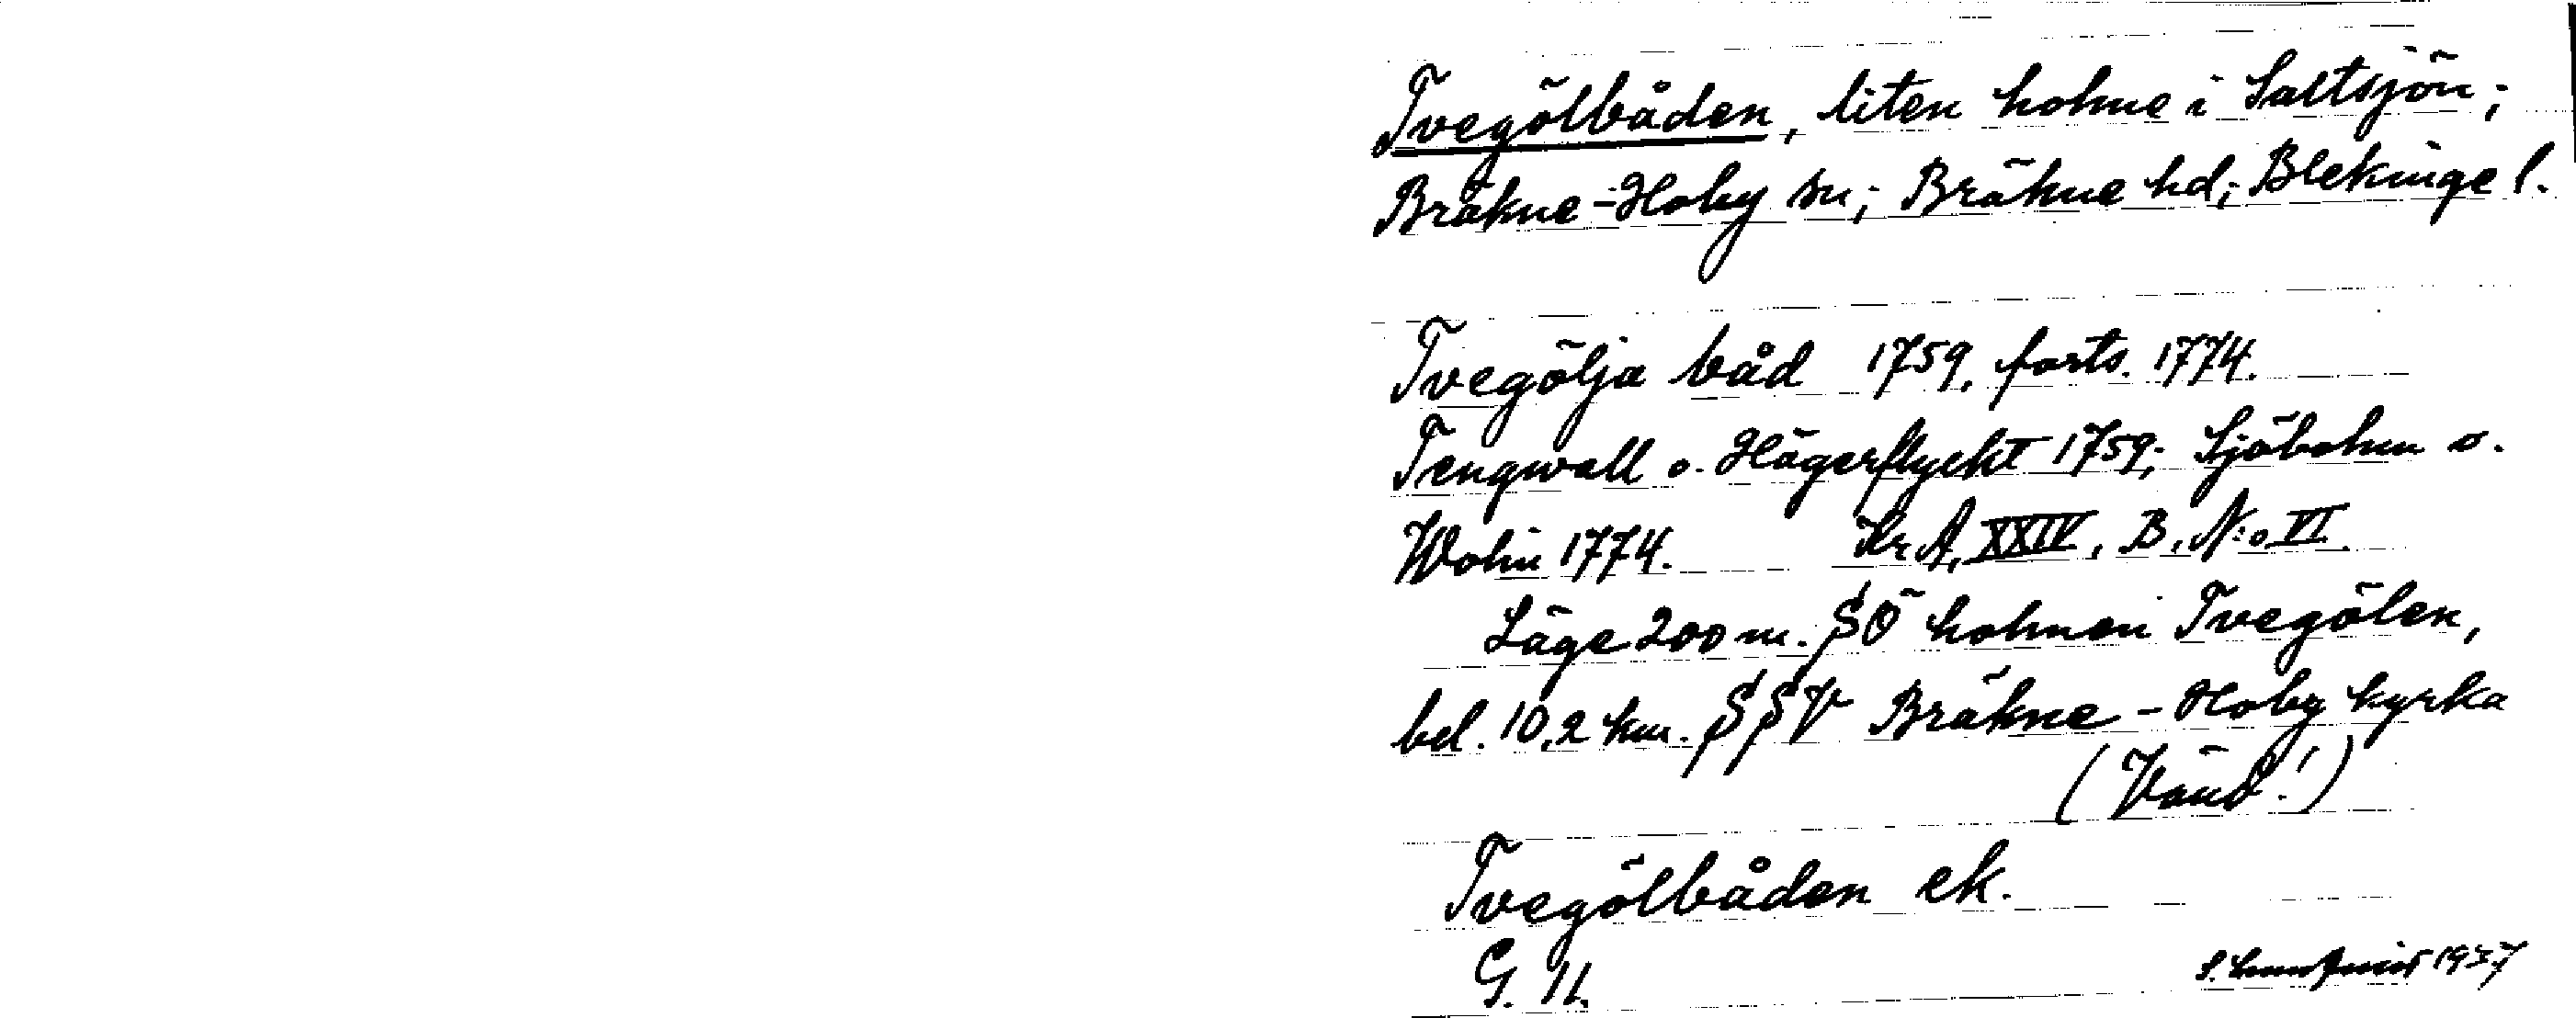 Tvegölbåden, liten holme i Saltsjön;
Bräkne-Hoby sn; Bräkne hd; Blekinge l.
Tvegölja båd 1759, forts. 1774.
Tengwall o. Hägerflycht 1759; Sjöbohm o.
Wolin 1774. Kr A, XXIV, B, N:o VI.
Läge 200 m. SÖ holmen Tvegölen,
bel. 10,2 km. SSV Bräkne-Hoby kyrka
(Vänd!)
Tvegölbåden ek.
G. 11.
1937